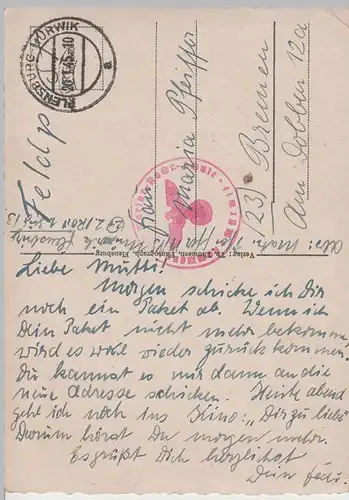 FLENSBURG-MÜRWIK
a
Feldp
Frau
Maria Pfeiffer
(23) Bremen
Am Dobben 12a
Verlag: Th. Thomsen, Photograph, Flensburg
Liebe Mutti!
Morgen schicke ich Dir
noch ein Paket ab. Wenn ich
Dein Paket nicht mehr bekomme
wird es wohl wieder zurückkommen.
Du kannst es mir dann an die
neue Adresse schicken. Heute abend
gehe ich noch ins Kino: „Dir zu liebe“
Davon hörst Du morgen mehr.
Es grüßt Dich herzlichst
Dein